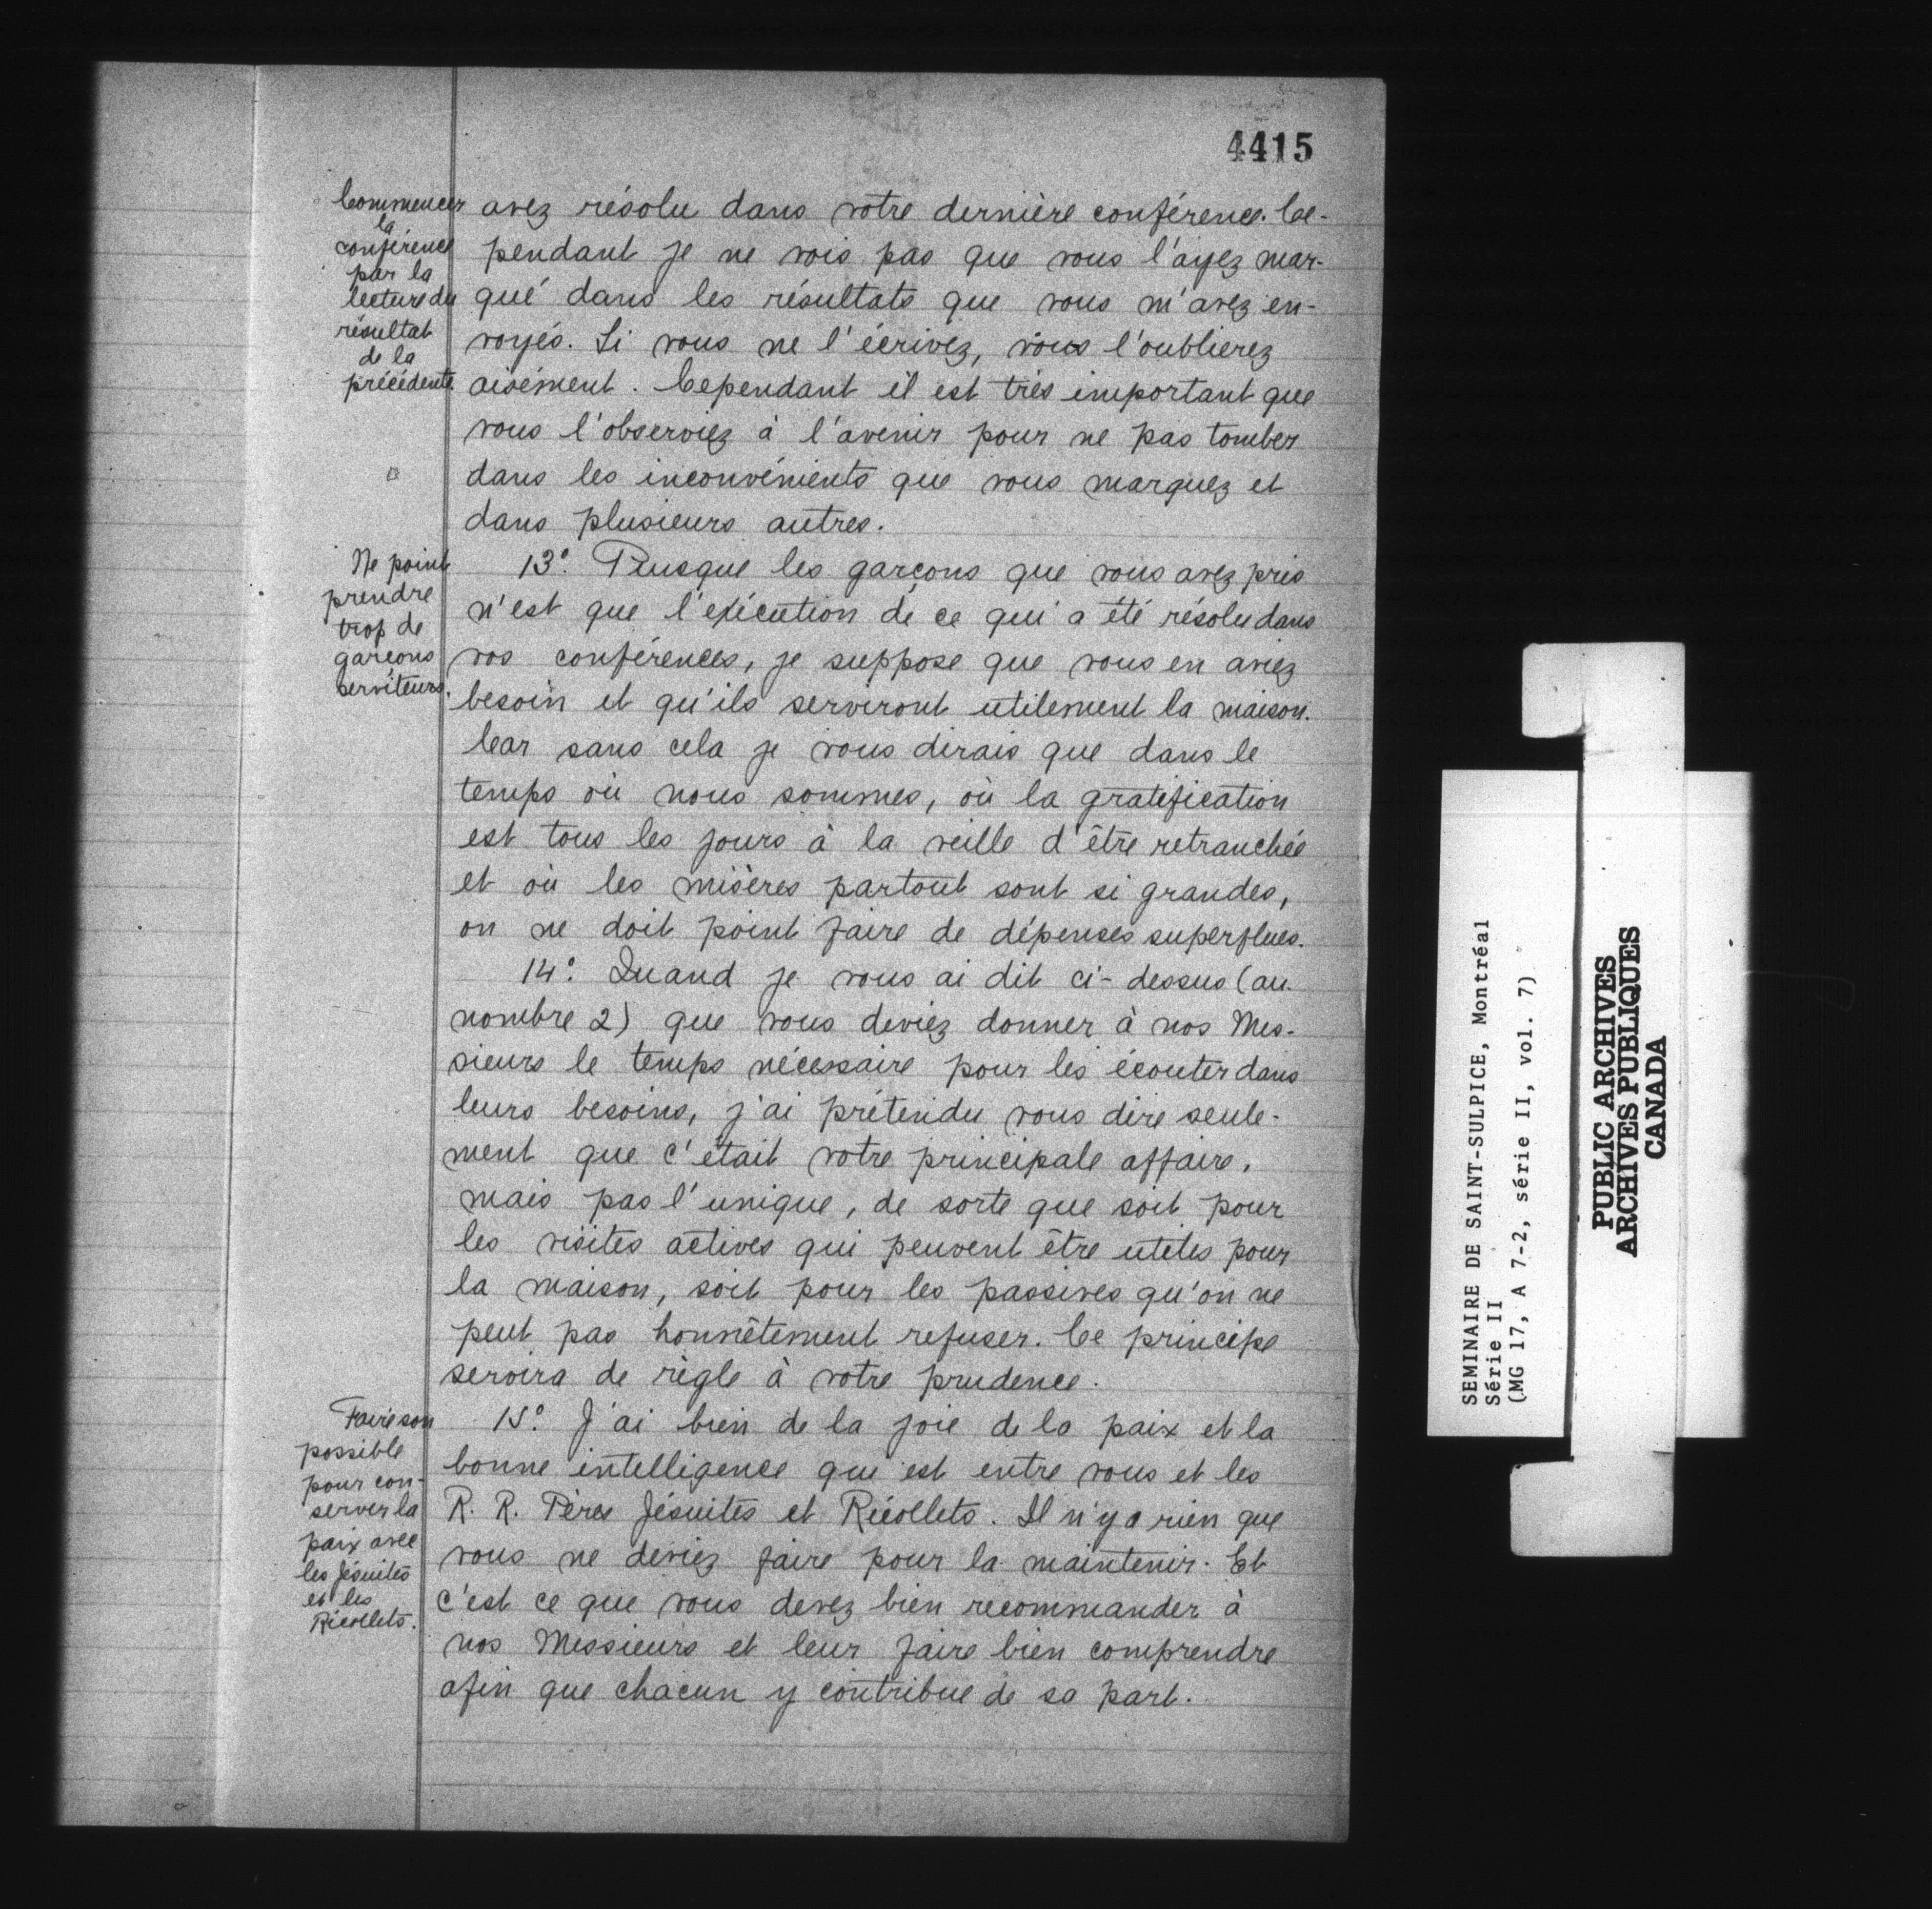 4415
Commencer
la
conférence
par la
lecture du
résultat
de la
précédente.
avez résolu dans votre dernière conférence. Ce-
pendant je ne vois pas que vous l'ayez mar-
qué dans les résultats que vous m'avez en-
voyés. Si vous ne l'écrivez, vous l'oublierez
aisément. Cependant il est très important que
vous l'observiez à l'avenir pour ne pas tomber
dans les inconvénients que vous marquez et
dans plusieurs autres.
Ne point
prendre
trop de
garçons
serviteurs.
13° Puisque les garçons que vous avez pris
n'est que l'exécution de ce qui a été résolu dans
vos conférences, je suppose que vous en aviez
besoin et qu'ils serviront utilement la maison.
Car sans cela je vous dirais que dans le
temps où nous sommes, où la gratification
est tous les jours à la veille d'être retranchée
et où les misères partout sont si grandes,
on ne doit point faire de dépenses superflues.
14° Quand je vous ai dit ci-dessus (au
nombre 2) que vous deviez donner à nos Mes-
sieurs le temps nécessaire pour les écouter dans
leurs besoins, j'ai prétendu vous dire seule-
ment que c'était votre principale affaire,
mais pas l'unique, de sorte que soit pour
les visites actives qui peuvent être utiles pour
la maison, soit pour les passives qu'on ne
peut pas honnêtement refuser. Ce principe
servira de règle à votre prudence.
Faire son
possible
pour con-
server la
paix avec
les Jésuites
et les
Récollets.
15° J'ai bien de la joie de la paix et la
bonne intelligence qui est entre vous et les
R. R. Pères Jésuites et Récollets. Il n'y a rien que
vous ne deviez faire pour la maintenir. Et
c'est ce que vous devez bien recommander à
nos Messieurs et leur faire bien comprendre
afin que chacun y contribue de sa part.
SEMINAIRE DE SAINT-SULPICE, Montréal
Série II
(MG 17, A 7-2, série II, vol. 7)
PUBLIC ARCHIVES
ARCHIVES PUBLIQUES
CANADA